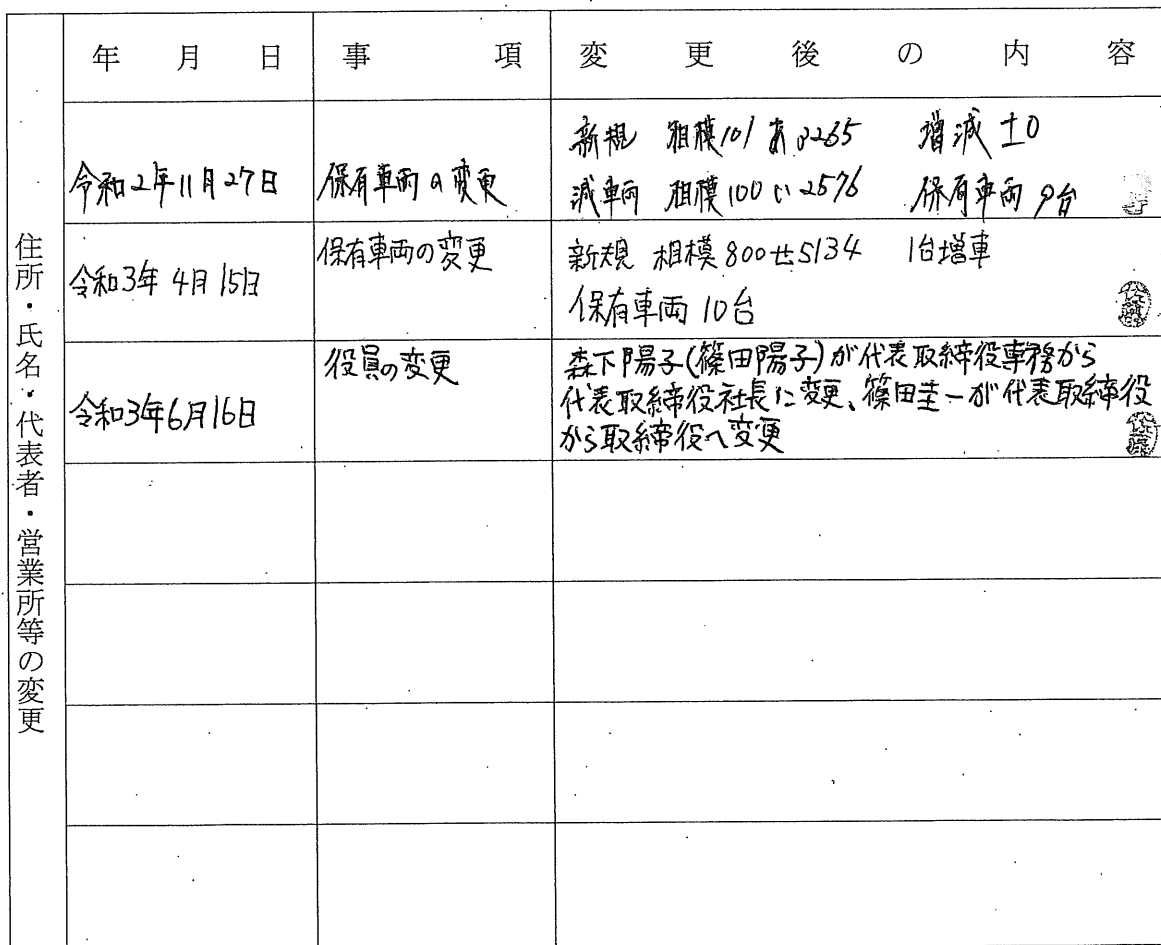 年 月 日 事 項 変 更 後 の 内 容
住所・氏名・代表者・営業所等の変更
令和2年11月27日 保有車両の変更
新規 相模101あ3265 増減 ±0
減車両 相模100い2576 保有車両 9台
令和3年4月15日 保有車両の変更
新規 相模800せ5134 1台増車
保有車両 10台
令和3年6月16日 役員の変更
森下陽子(篠田陽子)が代表取締役専務から
代表取締役社長に変更、篠田圭一が代表取締役
から取締役へ変更